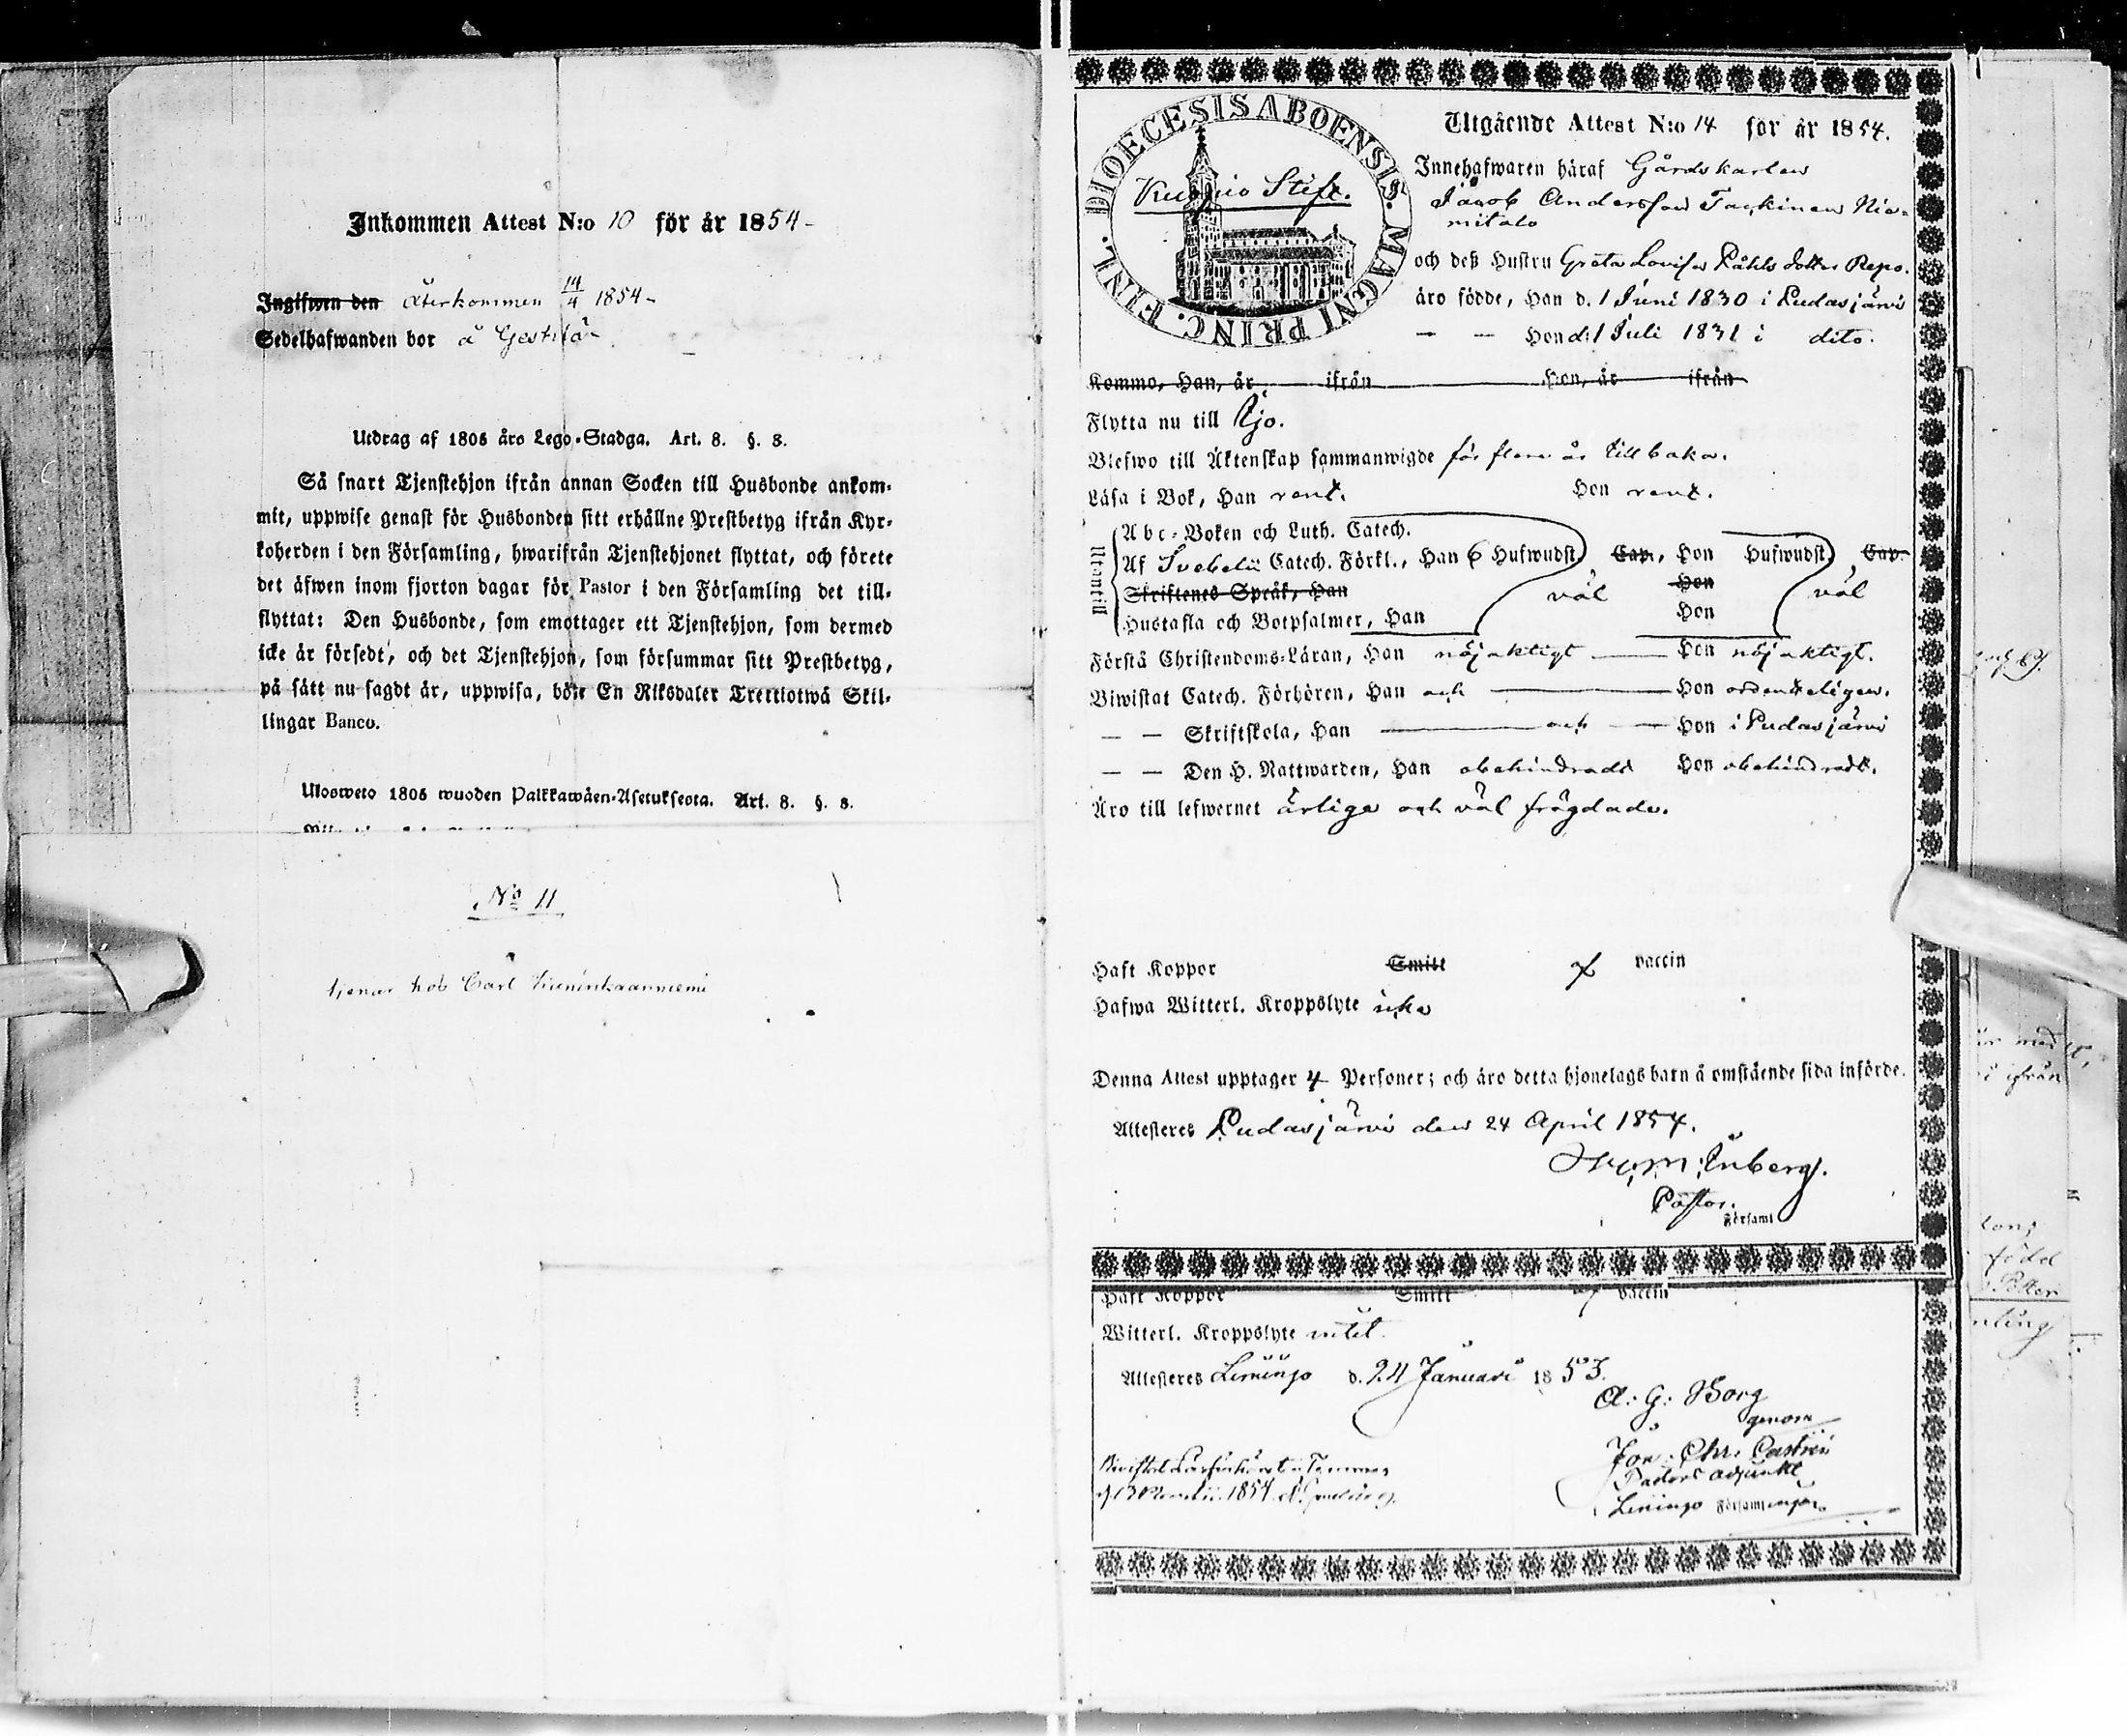 Inkommen Attest N:o 10 för år 1854-
Ingifwen den återkommen 14/4 1854-
Sedelhafwanden bor å
Utdrag af 1805 års Lego-Stadga. Art. 8. §. 8.
Så snart Tjenstehjon ifrån annan Socken till Husbonde ankom-
mit, uppwise genast för Husbonden sitt erhållne Prestbetyg ifrån Kyr-
koherden i den Församling, hwarifrån Tjenstehjonet flyttat, och förete
det äfwen inom fjorton dagar för Pastor i den Församling det till-
flyttat: Den Husbonde, som emottager ett Tjenstehjon, som dermed
icke är försedt, och det Tjenstehjon, som försummar sitt Prestbetyg,
på sätt nu sagdt är, uppwisa, böte En Riksdaler Trettiotwå Skil-
lingar Banco.
Ulosweto 1805 wuoden Palkkawäen-Asetuksesta. Art. 8. §. 8.
No 11
tjenar hos Carl
DIOECESIS ABOENSIS. MAGNI PRINC. FINL.
Kuopio Stift.
Utgående Attest N:o 14 för år 1854.
Innehafwaren häraf Gårdskarlen
Jacob Andersson Tackinen Nie-
mitalo
och deß Hustru Greta Lovisa Påhls dotter Repo.
äro födde, Han d. 1 Juni 1830 i Pudasjärvi
— — Hon d. 1 Juli 1831 i dito.
Kommo, Han, år ifrån Hon, år ifrån
Flytta nu till Ijo.
Blefwo till Äktenskap sammanwigde för flera år tillbaka.
Läsa i Bok, Han rent. Hon rent.
Utantill
Abc-Boken och Luth. Catech.
Af Svebelii Catech. Förkl., Han 6 Hufwudst. Cap., Hon Hufwudst., Cap.
Skriftenes Språk, Han väl Hon väl
Hustafla och Botpsalmer, Han Hon
Förstå Christendoms-Läran, Han nöjaktigt — Hon nöjaktigt.
Biwistat Catech. Förhören, Han och — Hon ordenteligen.
— — Skriftskola, Han — och — Hon i Pudasjärvi
— — Den H. Nattwarden, Han obehindradt Hon obehindradt.
Äro till lefwernet ärliga och väl frägdade.
Haft Koppor Smitt af vaccin
Hafwa Witterl. Kroppslyte icke
Denna Attest upptager 4 Personer; och äro detta hjonelags barn å omstående sida införde.
Attesteres Pudasjärvi den 24 April 1854.
Pastor.
Församl
Haft Koppor Smitt af vaccin
Witterl. Kroppslyte intet.
Attesteres Limingo d. 24 Januari 1853.
A: G: Borg
genom
Jon: Chr: Castrén
Pastors adjunkt
Limingo Församl
1854
född